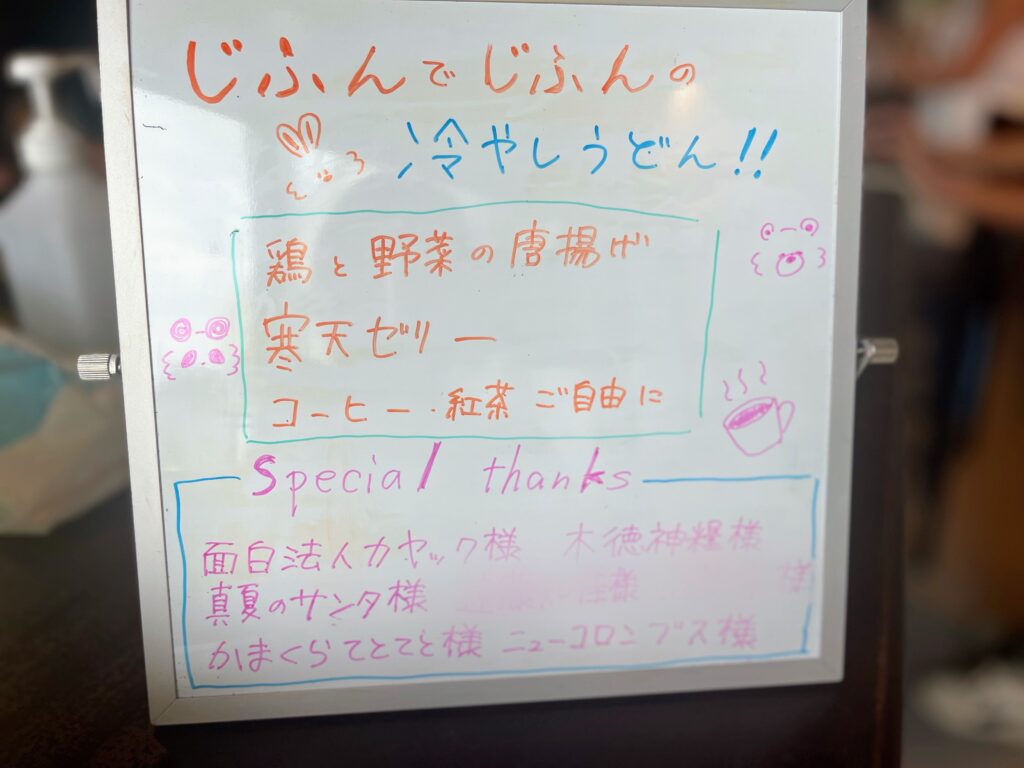 じふんでじふんの
冷やしうどん!!
鶏と野菜の唐揚げ
寒天ゼリー
コーヒー・紅茶 ご自由に
Special thanks
面白法人カヤック様 木徳神糧様
真夏のサンタ様 様 様
かまくらてとてと様 ニューコロンブス様